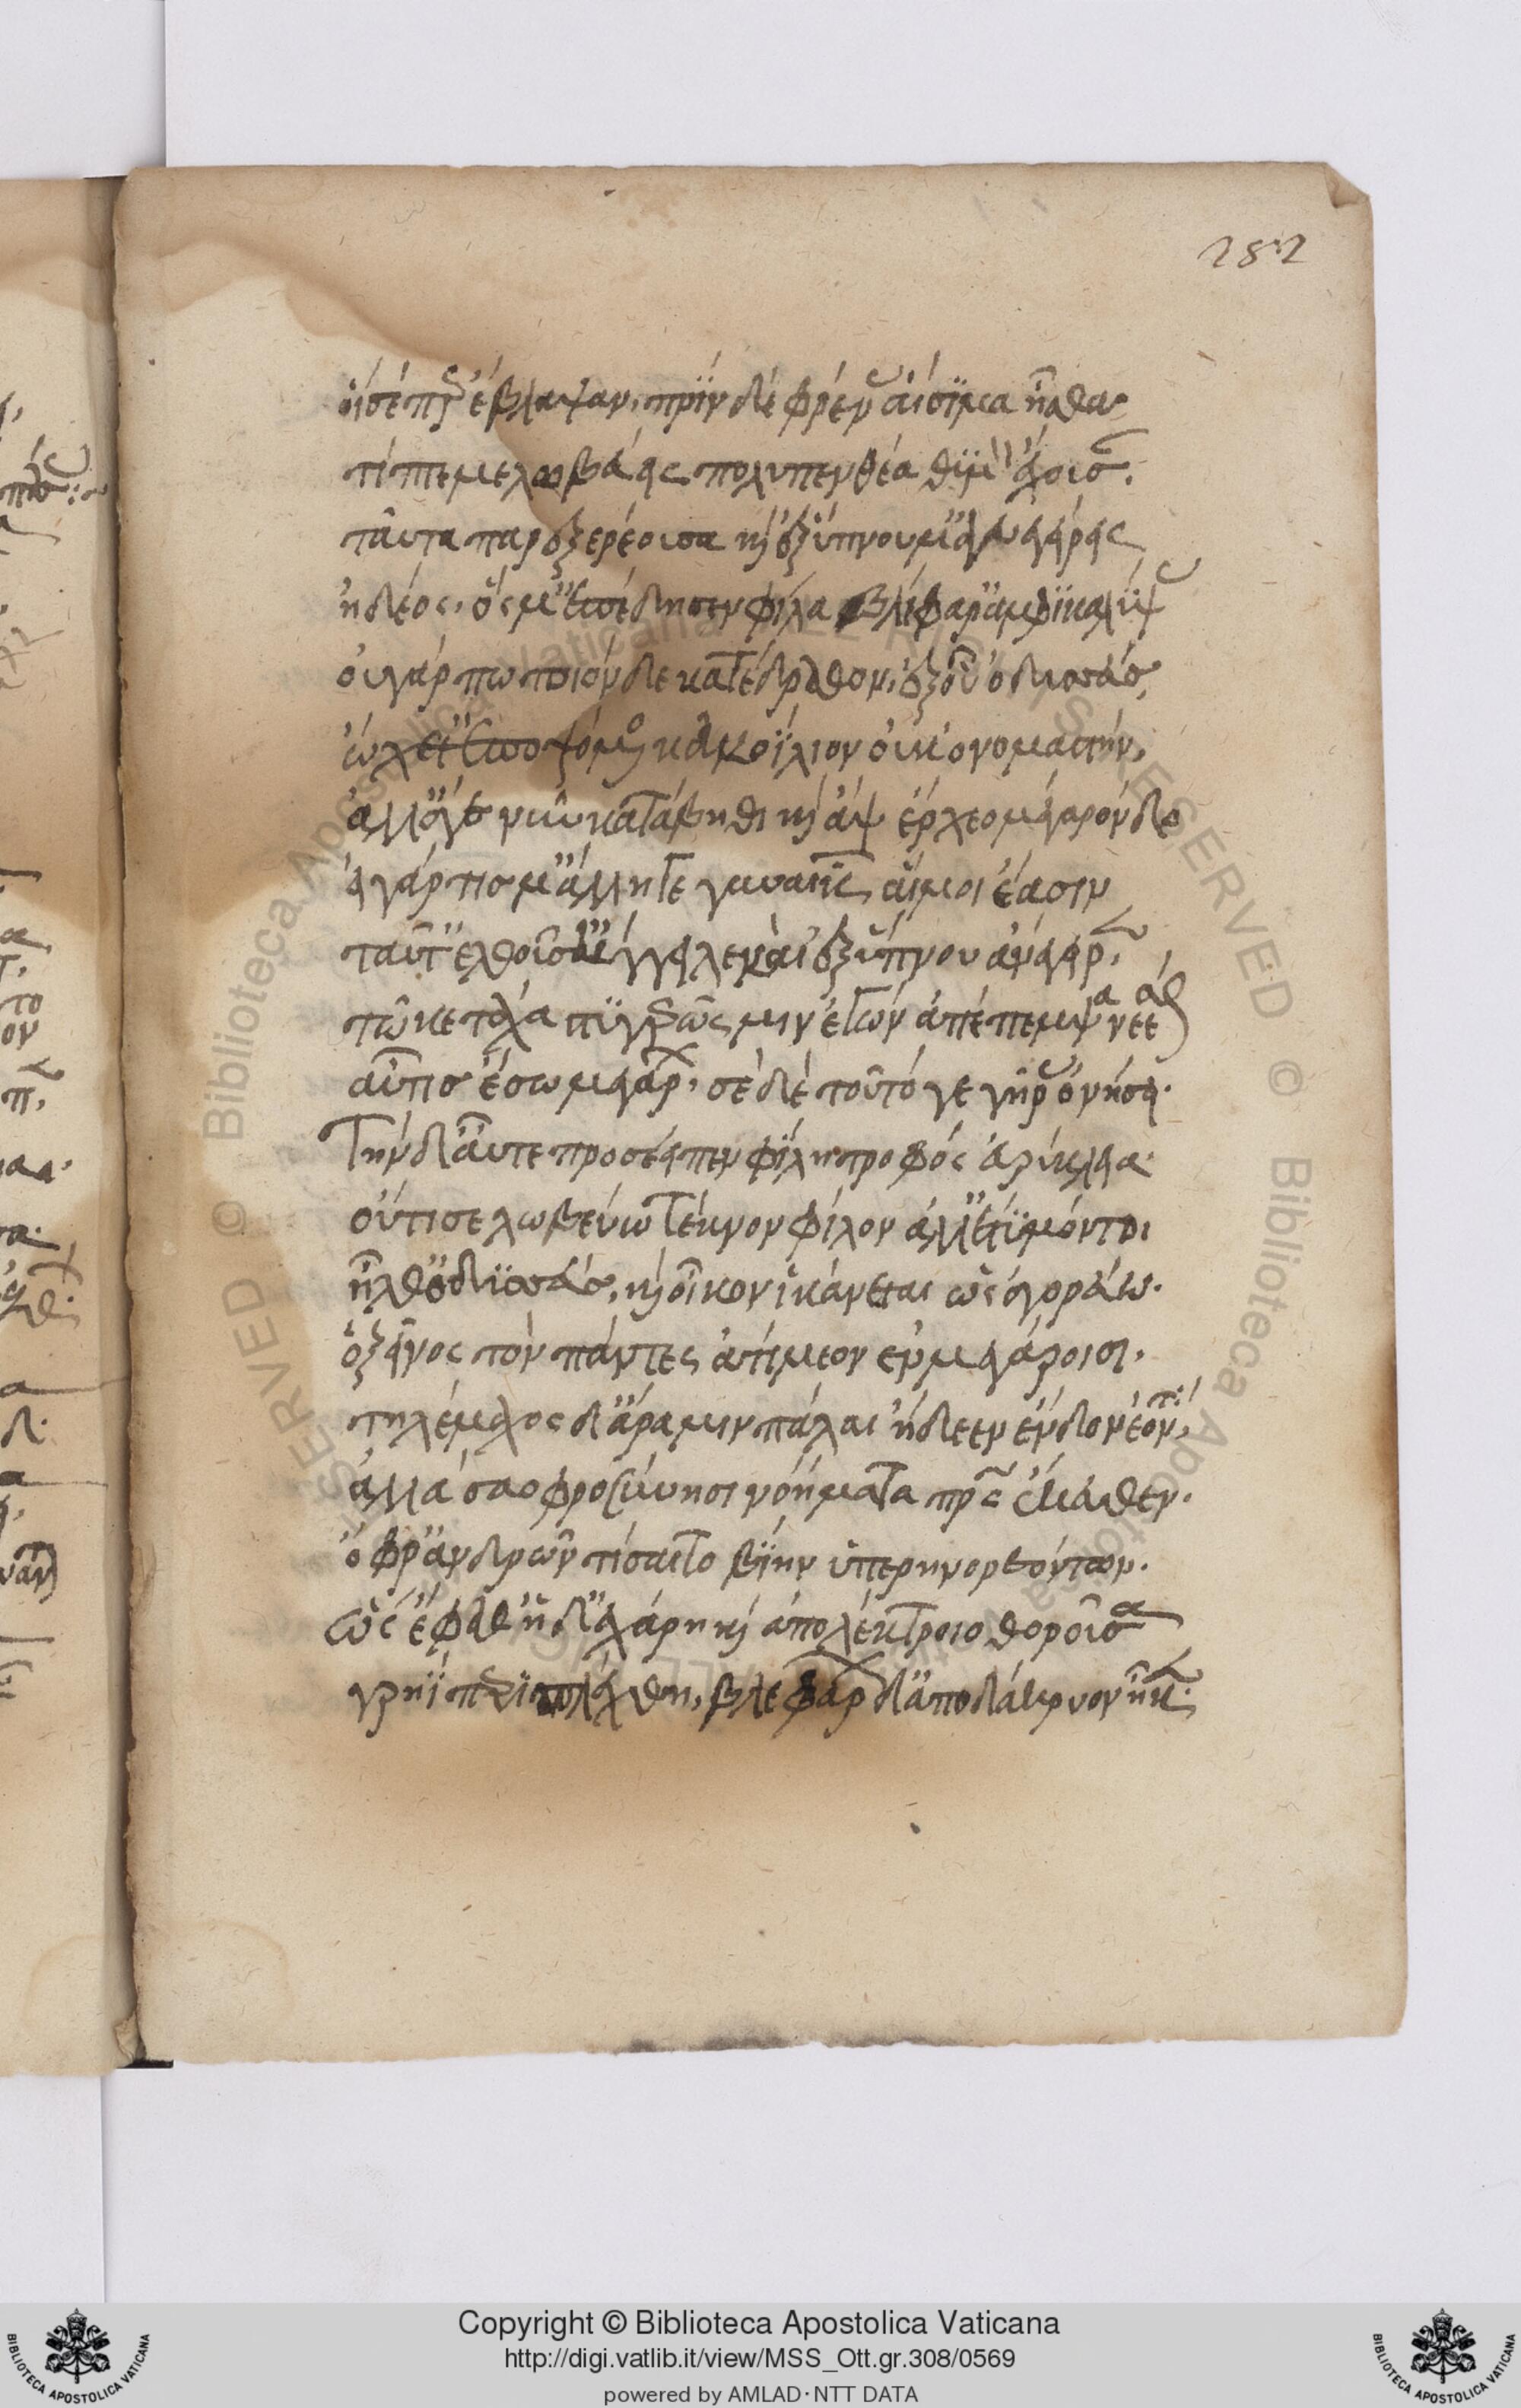 282
οἵ σέ περ ἔβλαψαν, πρὶν δὲ φρένας αἰσίμα ἦσθα·
τίπτέ με λωβάεις πολυπενθέα θυμὸν ἔχουσαν,
ταῦτα παρὲξ ἐρέουσα καὶ ἐξ ὕπνου μ' ἀνεγείρεις
ἡδέος, ὅς μ' ἐπέδησεν φίλα βλέφαρ' ἀμφικαλύψας
οὐ γάρ πω τοιόνδε κατέδραθον, ἐξ οὗ ὀδυσσεὺς
ᾤχετ' ἐποψόμενος κακοΐλιον οὐκ ὀνομαστήν,
ἀλλ' ἄγε νῦν κατάβηθι καὶ ἂψ ἔρχευ μέγαρόνδε
εἰ γάρ τίς μ' ἄλλη γε γυναικῶν, αἵ μοι ἔασιν
ταῦτ' ἐλθοῦσ' ἤγγειλε καὶ ἐξ ὕπνου ἀνέγειρεν,
τῶ κε τάχα στυγερῶς μιν ἐγὼν ἀπέπεμψα νέεσθαι
αὖτις ἔσω μέγαρον, σὲ δὲ τοῦτό γε γῆρας ὀνήσει·
Τὴν δ' αὖτε προσέειπεν φίλη τροφὸς εὐρύκλεια·
οὔ τί σε λωβεύω τέκνον φίλον ἀλλ' ἔτυμόν τοι
ἦλθ' ὀδυσσεύς, καὶ οἶκον ἱκάνεται ὡς ἀγορεύω·
ὁ ξεῖνος τὸν πάντες ἀτίμεον ἐν μεγάροισι,
τηλέμαχος δ' ἄρα μιν πάλαι ᾔδεεν ἔνδον ἐόντα,
ἀλλὰ σαοφροσύνησι νοήματα πατρὸς ἔκευθεν·
ὄφρ' ἀνδρῶν τίσαιτο βίην ὑπερηνορεόντων·
ὣς ἔφαθ' ἡ δ' ἐχάρη καὶ ἀπὸ λέκτροιο θοροῦσα
γρηῒ περιπλέχθη, βλεφάρων δ' ἀπὸ δάκρυον ἧκεν·
Copyright © Biblioteca Apostolica Vaticana
http://digi.vatlib.it/view/MSS_Ott.gr.308/0569
powered by AMLAD·NTT DATA